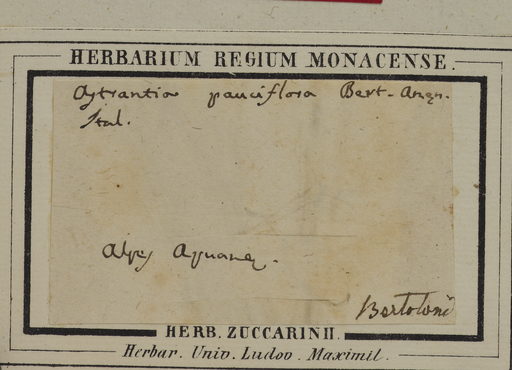 HERBARIUM REGIUM MONACENSE.
Astrantia pauciflora Bert. Amoen.
Ital.
Alpes Apuanae.
Bertoloni
HERB. ZUCCARINII.
Herbar. Univ. Ludov. Maximil.